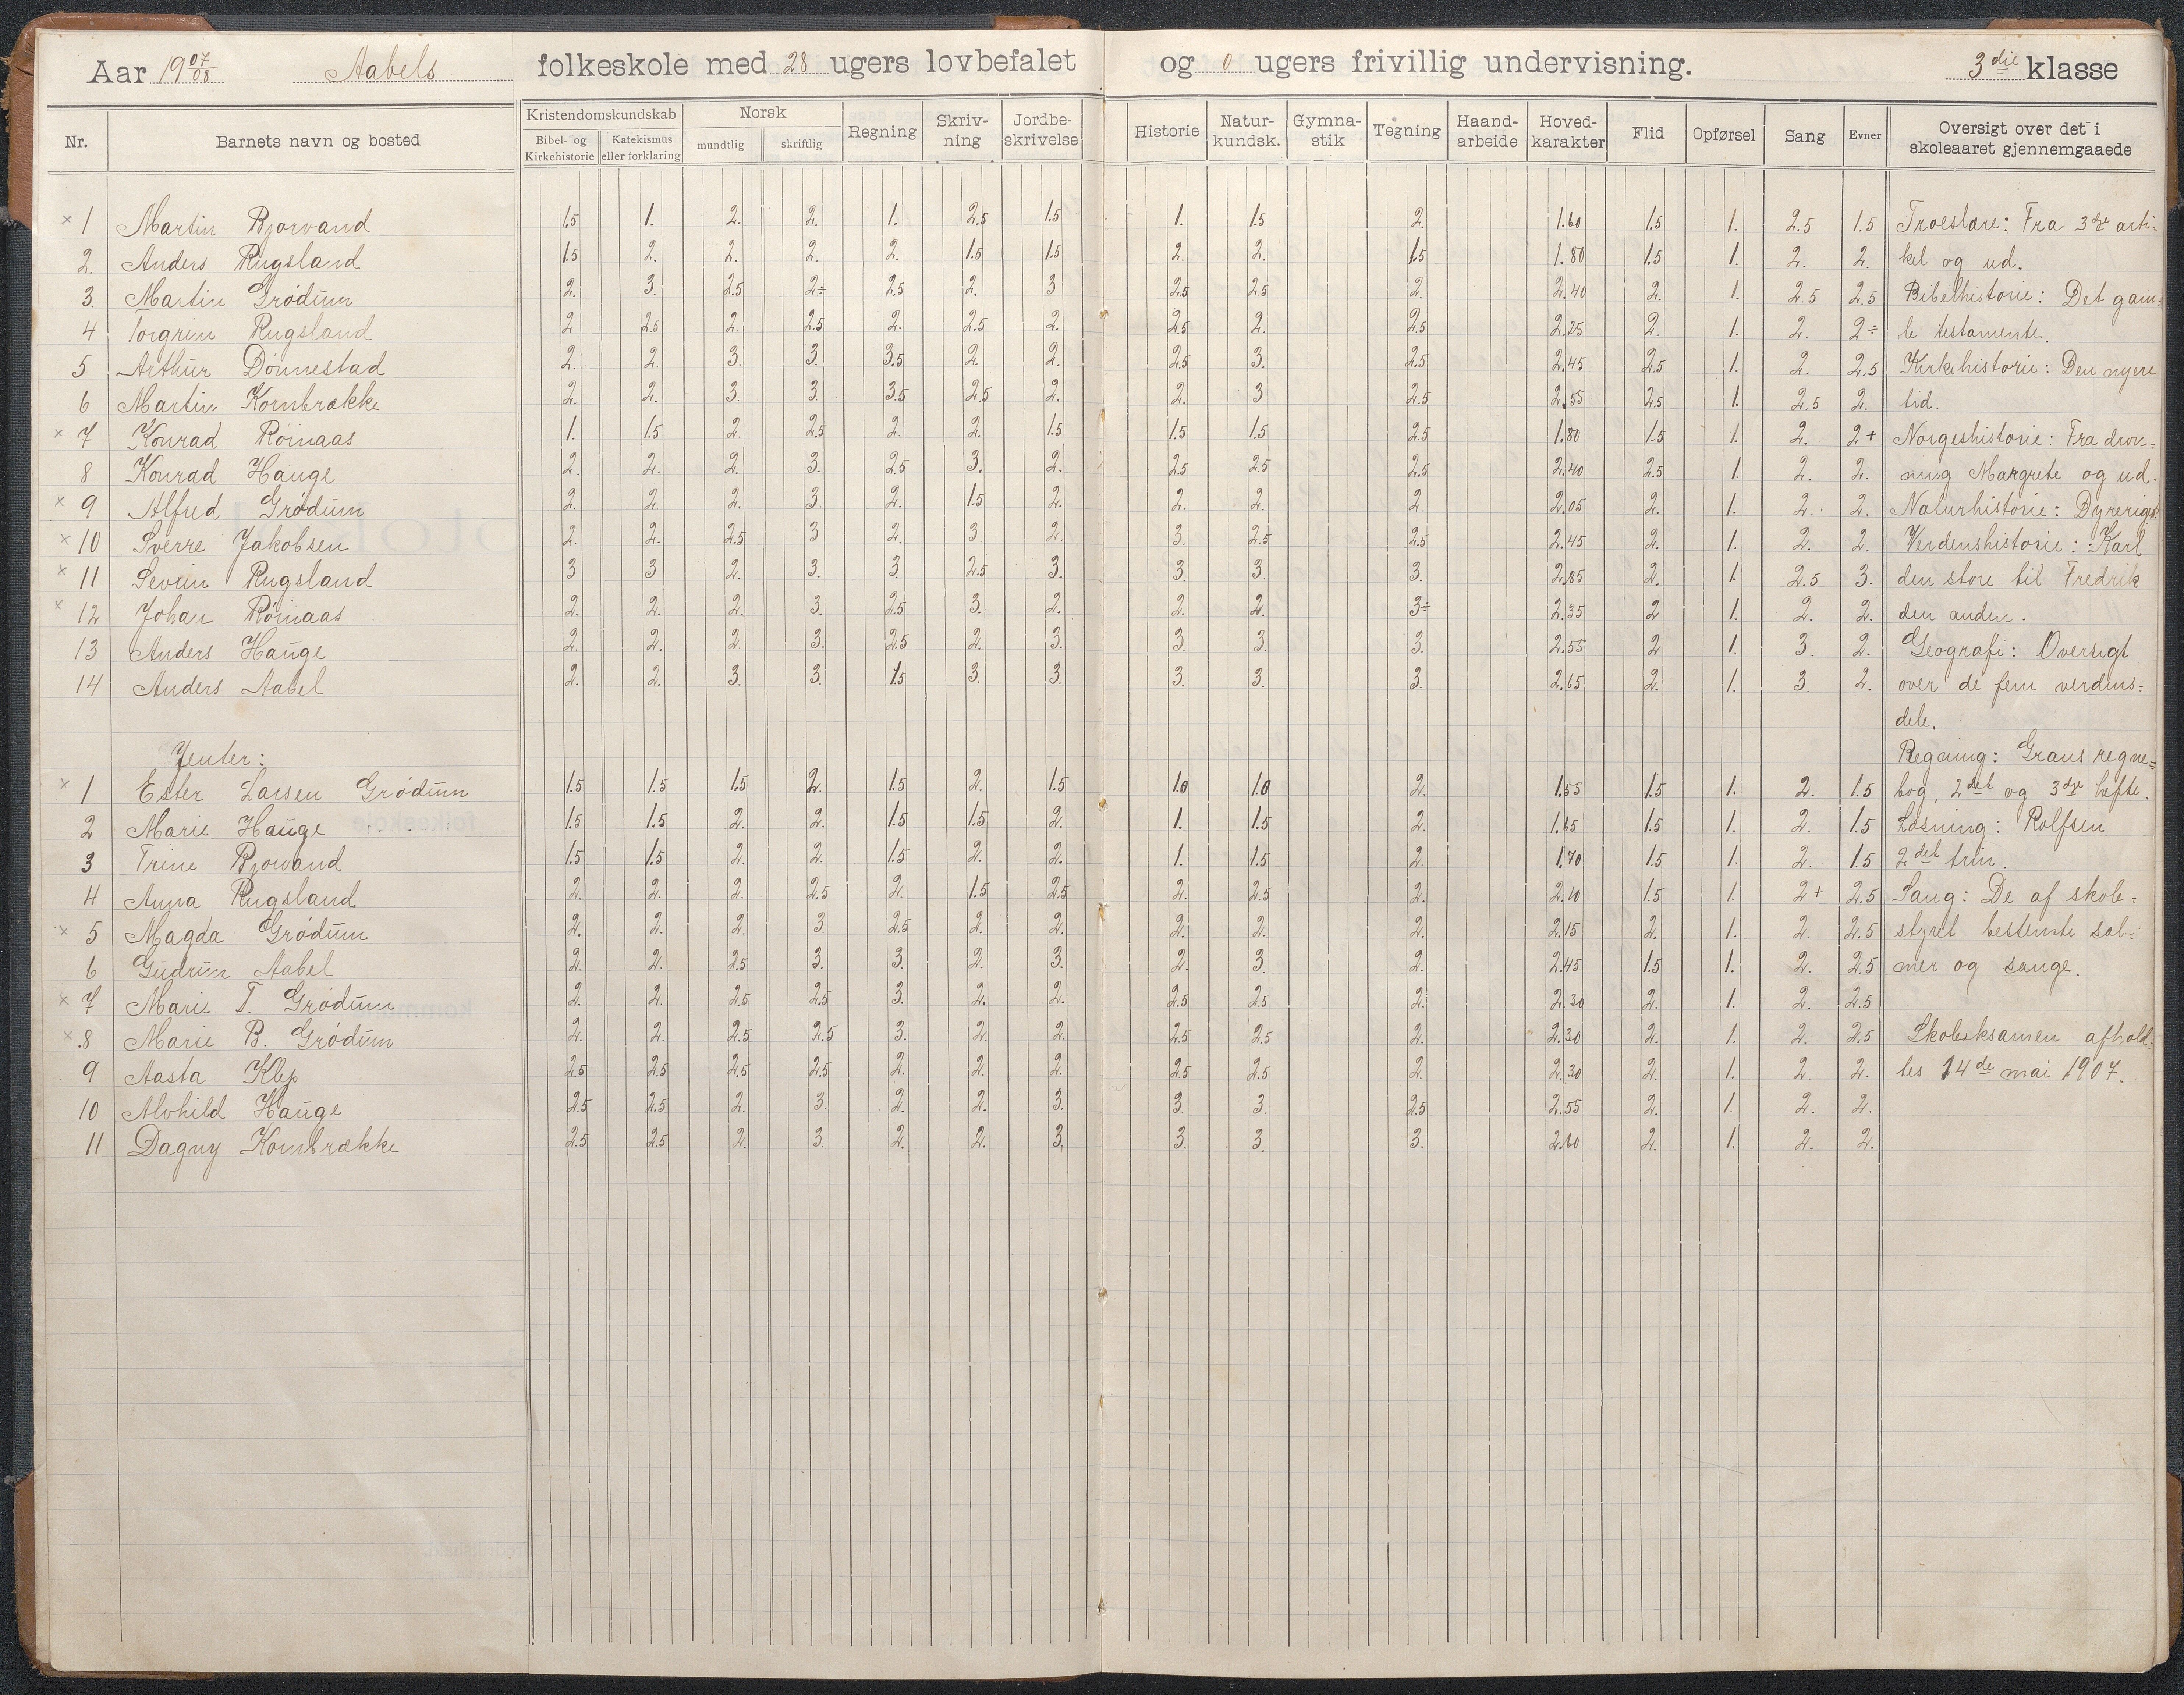 Aar 19 07/08 Aabels folkeskole med 28 ugers lovbefalet og 0 ugers frivillig undervisning. 3die klasse
Nr. Barnets navn og bosted Kristendomskundskab Bibel- og Kirkehistorie Katekismus eller forklaring Norsk mundtlig skriftlig Regning Skriv-ning Jordbe-skrivelse Historie Natur-kundsk. Gymna-stik Tegning Haand-arbeide Hoved-karakter Flid Opførsel Sang Evner Oversigt over det i skoleaaret gjennemgaaede
× 1 Martin Bjorvand 1.5 1. 2. 2. 1. 2.5 1.5 1. 1.5 2. 1.60 1.5 1. 2.5 1.5 Troeslære: Fra 3die arti-
2. Anders Rugsland 1.5 2. 2. 2. 2. 1.5 1.5 2. 2. 1.5 1.80 1.5 1. 2. 2. kel og ud.
3 Martin Grødum 2. 3. 2.5 2÷ 2.5 2. 3 2.5 2.5 2. 2.40 2. 1. 2.5 2.5 Bibelhistorie: Det gam-
4 Torgrim Rugsland 2 2.5 2. 2.5 2. 2.5 2. 2.5 2. 2.5 2.25 2. 1. 2. 2÷ le testamente.
5 Arthur Dønnestad 2. 2. 3. 3. 3.5 2. 2. 2.5 3. 2.5 2.45 2.5 1. 2. 2.5 Kirkehistorie: Den nyere
6 Martin Kornbrække 2. 2. 3. 3. 3.5 2.5 2. 2. 3 2.5 2.55 2.5 1. 2.5 2. tid.
× 7 Konrad Røinaas 1. 1.5 2. 2.5 2. 2. 1.5 1.5 1.5 2.5 1.80 1.5 1. 2. 2+ Norgeshistorie: Fra dron-
8 Konrad Hauge 2. 2. 2. 3. 2.5 3. 2. 2.5 2.5 2.5 2.40 2.5 1. 2. 2. ning Margrete og ud.
× 9 Alfred Grødum 2. 2. 2. 3. 2. 1.5 2. 2. 2. 2. 2.05 2. 1. 2. 2. Naturhistorie: Dyreriget.
× 10 Sverre Jakobsen 2. 2. 2.5 3 2. 3. 2. 3. 2.5 2.5 2.45 2. 1. 2. 2. Verdenshistorie: Karl
× 11 Severin Rugsland 3 3 2. 3. 3. 2.5 3. 3. 3. 3. 2.85 2. 1. 2.5 3. den store til Fredrik
× 12 Johan Røinaas 2. 2. 2. 3. 2.5 3. 2. 2. 2. 3÷ 2.35 2 1. 2. 2. den anden.
13 Anders Hauge 2. 2. 2. 3. 2.5 2. 3. 3. 3. 3. 2.55 2 1. 3. 2. Geografi: Oversigt
14 Anders Aabel 2. 2. 3. 3. 1.5 3. 3. 3. 3. 3. 2.65 2. 1. 3. 2. over de fem verdens-
dele.
Jenter: Regning: Grans regne-
× 1 Ester Larsen Grødum 1.5 1.5 1.5 2. 1.5 2. 1.5 1.0 1.0 2. 1.55 1.5 1. 2. 1.5 bog, 2det og 3die hefte.
2 Marie Hauge 1.5 1.5 2. 2. 1.5 1.5 2. 1. 1.5 2. 1.65 1.5 1. 2. 1.5 Læsning: Rolfsen
3 Trine Bjorvand 1.5 1.5 2. 2. 1.5 2. 2. 1. 1.5 2. 1.70 1.5 1. 2. 1.5 2det trin.
4 Anna Rugsland 2. 2. 2. 2.5 2. 1.5 2.5 2. 2.5 2. 2.10 1.5 1. 2+ 2.5 Sang: De af skole-
× 5 Magda Grødum 2. 2. 2. 3 2.5 2. 2. 2. 2. 2. 2.15 2. 1. 2. 2.5 styret bestemte sal-
6 Gudrun Aabel 2. 2. 2.5 3. 3. 2. 3. 2. 3. 2. 2.45 1.5 1. 2. 2.5 mer og sange.
× 7 Marie T. Grødum 2. 2. 2.5 2.5 3. 2. 2. 2.5 2.5 2. 2.30 2. 1. 2. 2.5
× 8 Marie B. Grødum 2. 2. 2.5 2.5 3. 2. 2. 2.5 2.5 2. 2.30 2. 1. 2. 2.5 Skoleeksamen afhold-
9 Aasta Klep 2.5 2.5 2.5 2.5 2. 2. 2. 2.5 2.5 2. 2.30 2. 1. 2. 2. tes 14de mai 1907.
10 Alvhild Hauge 2.5 2.5 2. 3. 2. 2. 3. 3. 3. 2.5 2.55 2. 1. 2. 2.
11 Dagny Kornbrække 2.5 2.5 2. 3. 2. 2. 3. 3. 3. 3. 2.60 2. 1. 2. 2.